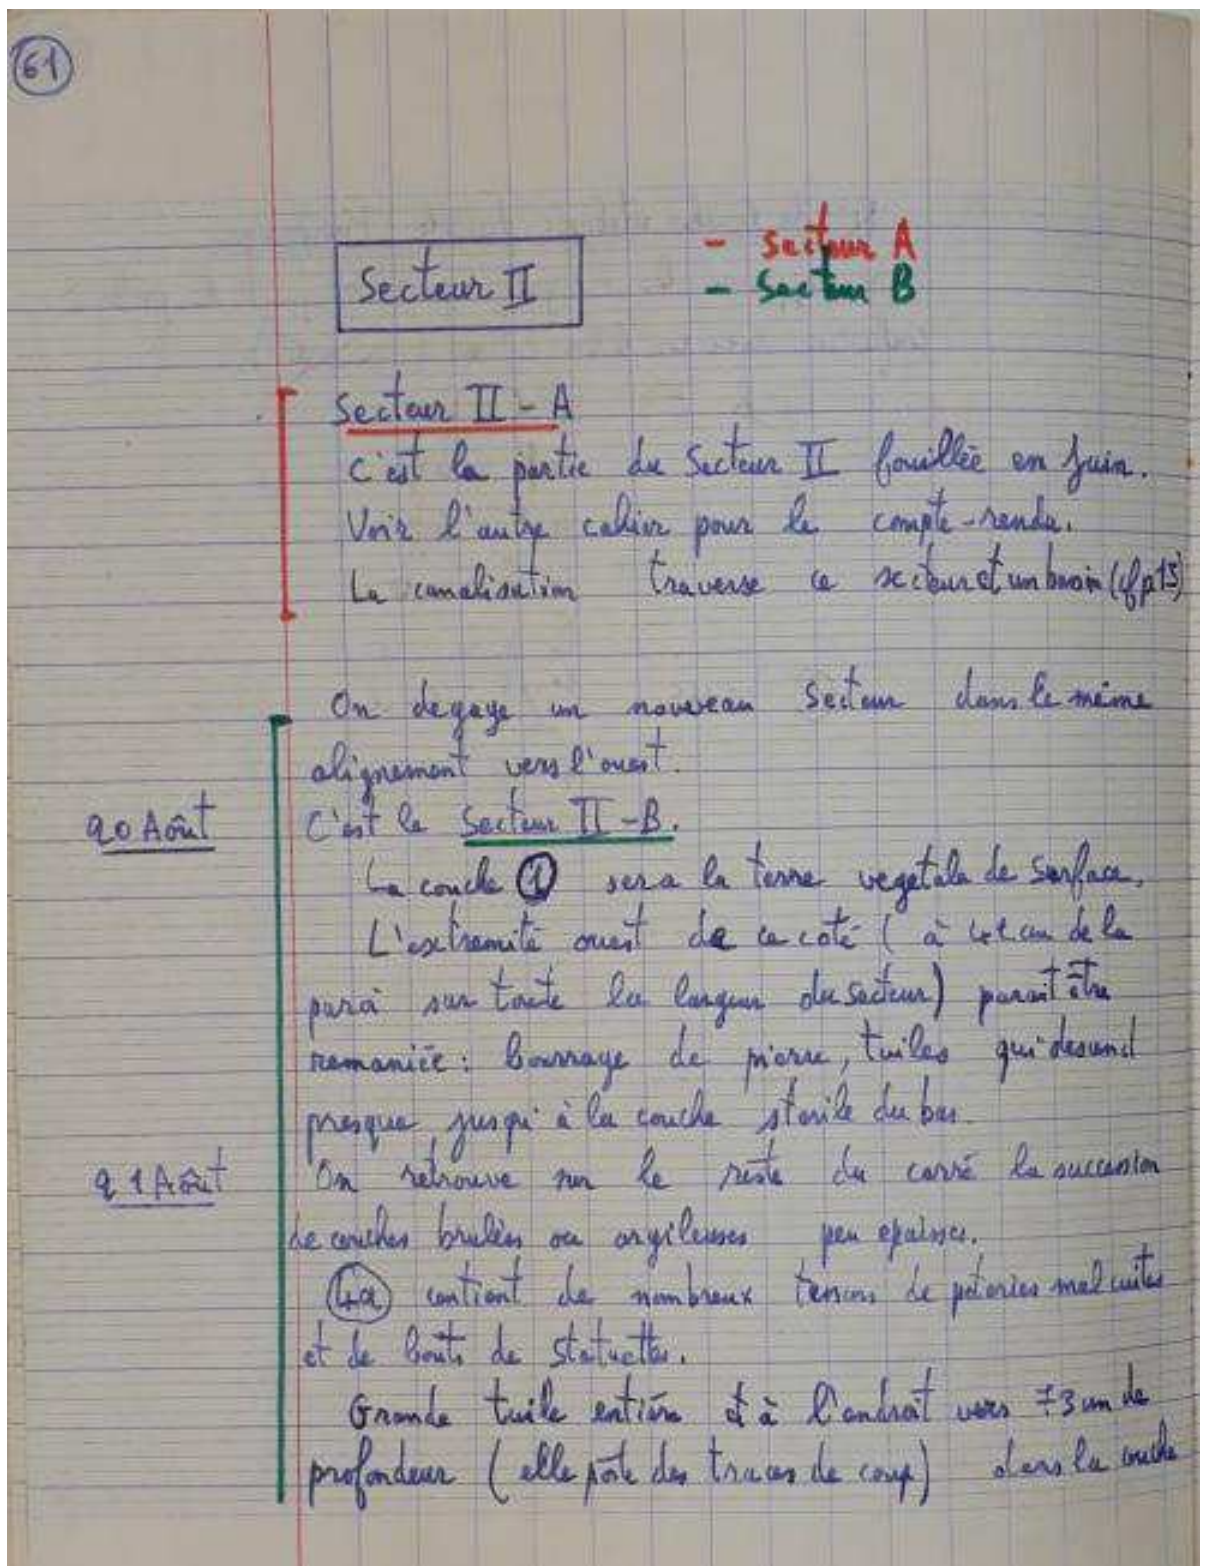 61
Secteur II
- Secteur A
- Secteur B
Secteur II - A
C'est la partie du Secteur II fouillée en Juin.
Voir l'autre cahier pour le compte-rendu.
La canalisation traverse ce secteur et un bassin (cf p
On degage un nouveau Secteur dans le même
alignement vers l'ouest.
20 Août
C'est le Secteur II - B.
La couche 1 sera la terre vegetale de surface.
L'extremité ouest de ce coté ( à cm de la
paroi sur toute la largeur du secteur) parait être
remaniée : bourrage de pierre, tuiles qui descend
presque jusqu'à la couche sterile du bas.
21 Août
On retrouve sur le reste du carré la succession
de couches brulées ou argileuses peu epaisses.
4a contient de nombreux tessons de poteries mal cuites
et de bouts de statuettes.
Grande tuile entière et à l'endroit vers 73 cm de
profondeur ( elle porte des traces de coup) dans la couche